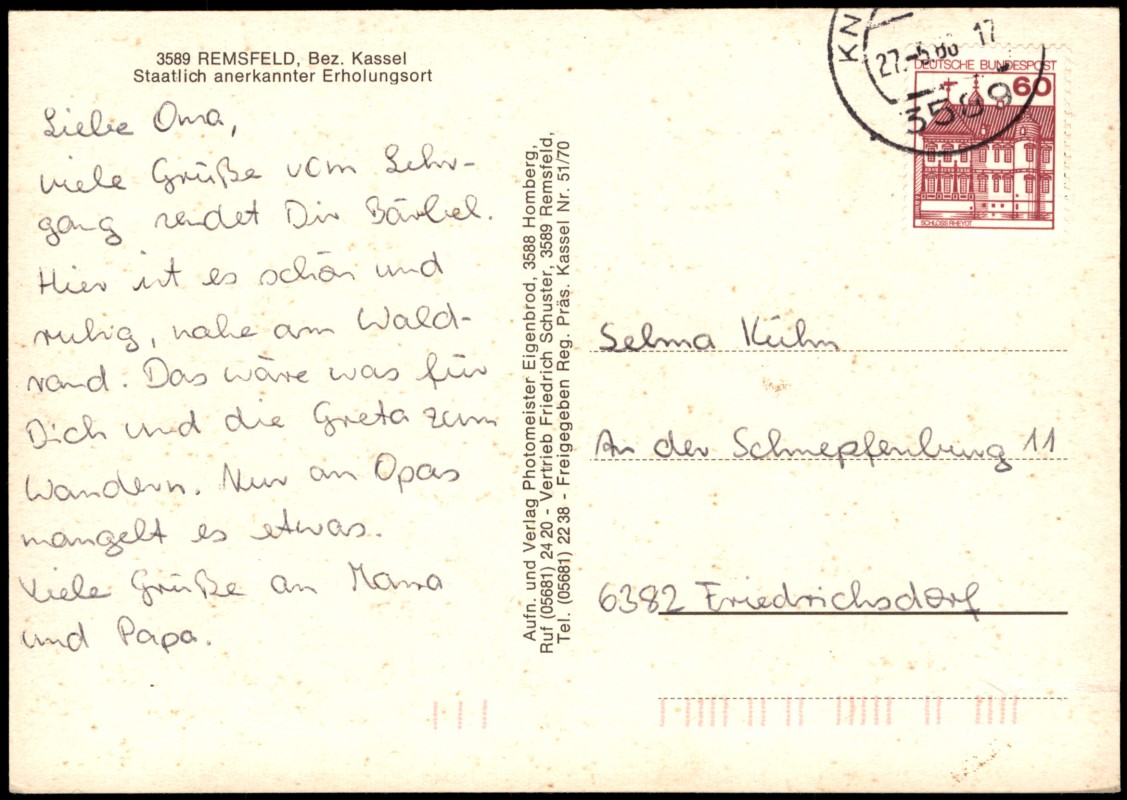 3589 REMSFELD, Bez. Kassel
Staatlich anerkannter Erholungsort
Liebe Oma,
viele Grüße vom Lehr-
gang sendet Dir Bärbel.
Hier ist es schön und
ruhig, nahe am Wald-
rand. Das wäre was für
Dich und die Greta zum
Wandern. Nur an Opas
mangelt es etwas.
Viele Grüße an Mama
und Papa.
Aufn. und Verlag Photomeister Eigenbrod, 3588 Homberg,
Ruf (05681) 24 20 - Vertrieb Friedrich Schuster, 3589 Remsfeld,
Tel. (05681) 22 38 - Freigegeben Reg. Präs. Kassel Nr. 51/70
KN
27.-5.86 17
3589
DEUTSCHE BUNDESPOST
60
SCHLOSS RHEYDT
Selma Kühn
An der Schnepfenburg 11
6382 Friedrichsdorf